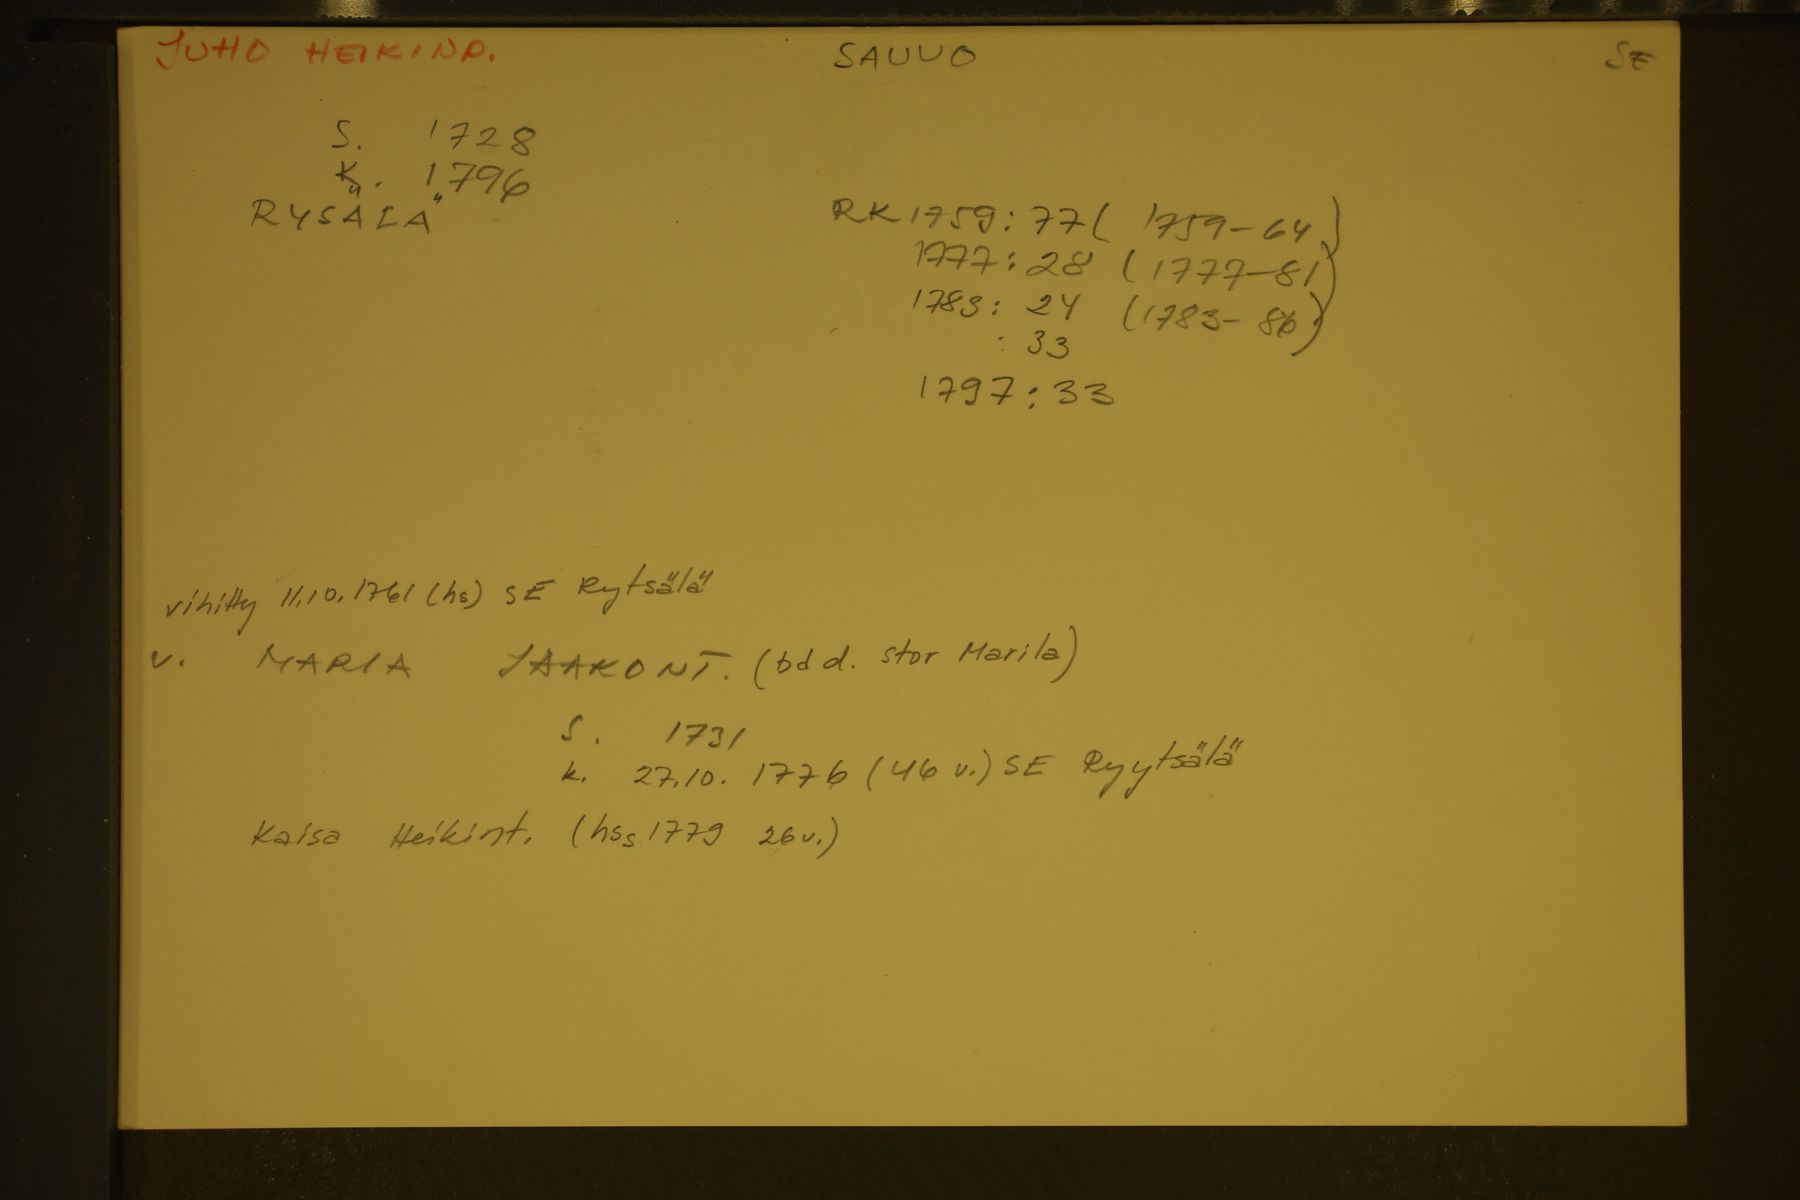 JUHO HEIKINP. SAUVO SE
S. 1728
K. 1796
RYSÄLÄ
RK 1759: 77 ( 1759-64)
1777: 28 (1777-81)
1783: 24 (1783-86)
: 33
1797: 33
vihitty 11.10.1761 (hs) SE Rytsälä
v. MARIA JAAKONT. (bdd. stor Marila)
S. 1731
k. 27.10. 1776 (46 v.) SE Ryytsälä
Kaisa Heikint. (hss 1779 26 v.)